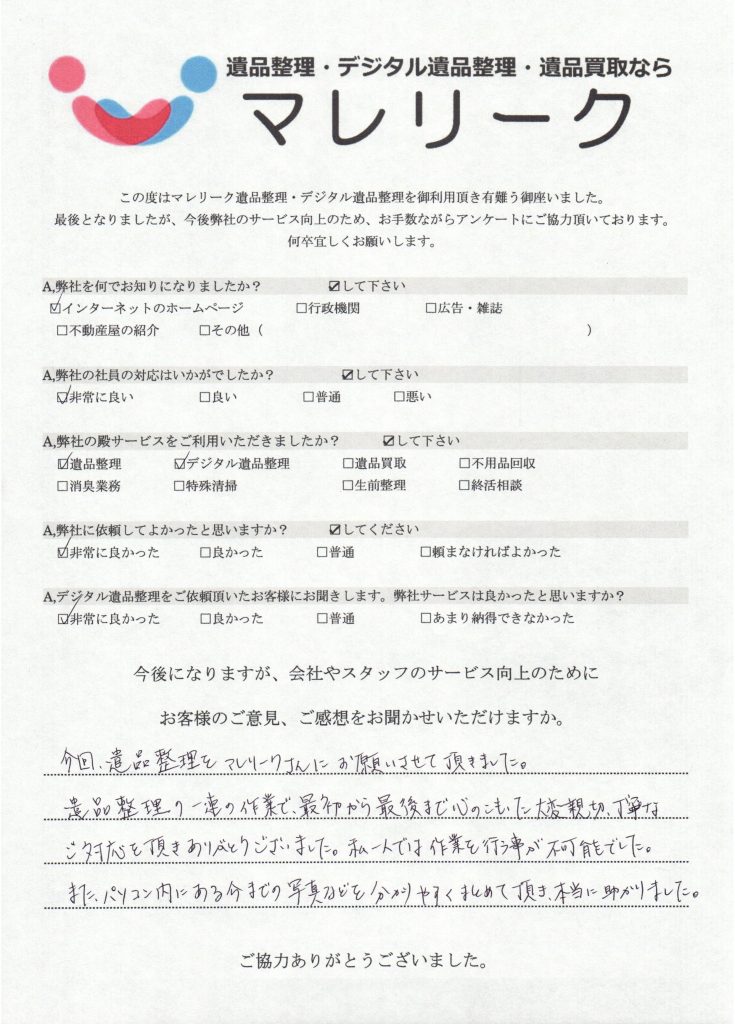 遺品整理・デジタル遺品整理・遺品買取なら
マレリーク
この度はマレリーク遺品整理・デジタル遺品整理を御利用頂き有難う御座いました。
最後となりましたが、今後弊社のサービス向上のため、お手数ながらアンケートにご協力頂いております。
何卒宜しくお願いします。
A,弊社を何でお知りになりましたか? ☑して下さい
☑インターネットのホームページ □行政機関 □広告・雑誌
□不動産屋の紹介 □その他( )
A,弊社の社員の対応はいかがでしたか? ☑して下さい
☑非常に良い □良い □普通 □悪い
A,弊社の殿サービスをご利用いただきましたか? ☑して下さい
☑遺品整理 ☑デジタル遺品整理 □遺品買取 □不用品回収
□消臭業務 □特殊清掃 □生前整理 □終活相談
A,弊社に依頼してよかったと思いますか? ☑してください
☑非常に良かった □良かった □普通 □頼まなければよかった
A,デジタル遺品整理をご依頼頂いたお客様にお聞きします。弊社サービスは良かったと思いますか?
☑非常に良かった □良かった □普通 □あまり納得できなかった
今後になりますが、会社やスタッフのサービス向上のために
お客様のご意見、ご感想をお聞かせいただけますか。
今回、遺品整理をマレリークさんにお願いさせて頂きました。
遺品整理の一連の作業で、最初から最後まで心のこもった大変親切、丁寧な
ご対応を頂きありがとうございました。私一人では作業を行う事が不可能でした。
また、パソコン内にある今までの写真などを分かりやすくまとめて頂き、本当に助かりました。
ご協力ありがとうございました。